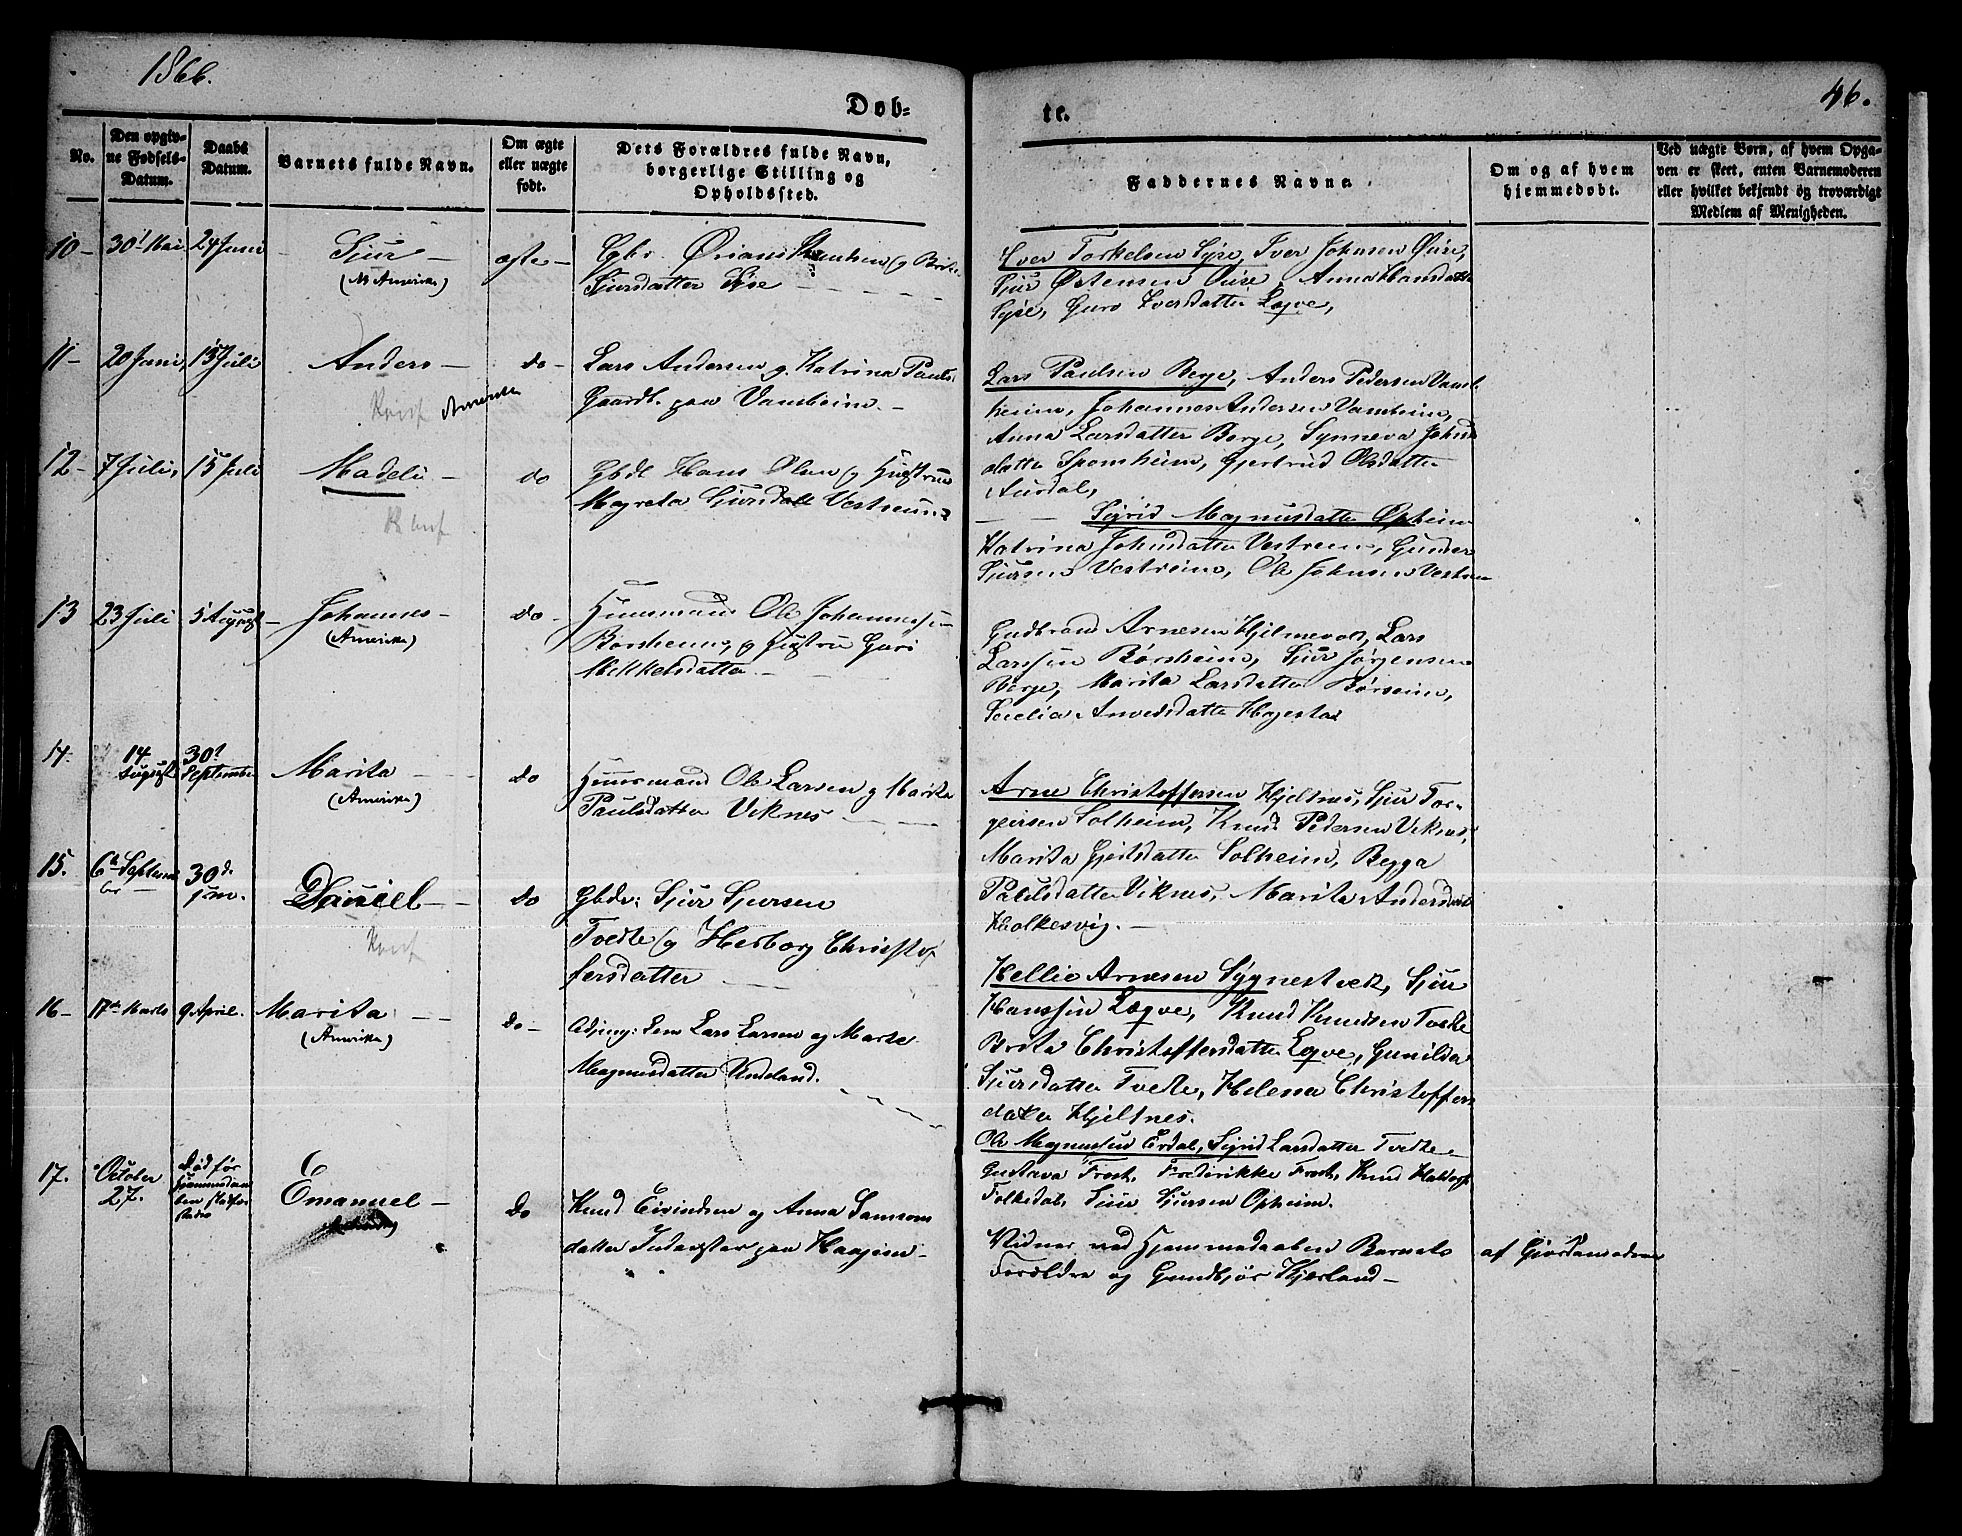 1866.
46.
Døb-
te.
No.
Den opgiv-
ne Fødsels-
Datum.
Daabs
Datum.
Barnets fulde Navn.
Om ægte
eller uægte
født.
Dets Forældres fulde Navn,
borgerlige Stilling og
Opholdssted.
Faddernes Navne.
Om og af hvem
hjemmedøbt.
Ved uægte Børn, af hvem Opga-
ven er skeet, enten Barnemoderen
eller hvilket bekjendt og troværdigt
Medlem af Menigheden.
10 - 30t Mai 24 Juni Sjur - ægte -
(N Amerika)
Sjursdatter Syse
Iver Torkelsen Syse, Iver Johnsen Quse,
Sjur Østensen Quse, Anna Hansdatter
Syse, Guro Iversdatter Legve,
11 - 20 Juni, 15 Juli Anders - do -
Konf Amerika
Lars Andersen g. Katrina Pauls-
Gaardb. paa Vambeim. -
Lars Paulsen Berge, Anders Pedersen Vam-
heim, Johannes Andersen Vambeim,
Anna Larsdatter Berge, Synneva Johns
datter Sponheim, Gjertrud Olsdatter
Ausdal,
12 - 7 Juli, 15 Juli Madeli - do
Konf
Gbdl Hans Olsen og Hustrue
Magreta Sjursdatt Vestreim
Sigrid Magnusdatter Opheim
Katrina Johnsdatter Vestreim, Gunder
Sjursen Vestreim, Ole Johnsen Vestrem
13 23 Juli 5 August - Johannes - do -
(Amerika)
Huusmand Ole Johannesen
Borsheim, og Hustru Guri
Mikkelsdatter -
Gudbrand Arnesen Hjelmevol, Lars
Larssen Børsheim, Sjur Jørgensen
Berge, Marita Larsdatter Børseim,
14. 14 August 30t September Marita - do
(Amerika)
Huusmand Ole Larsen og Marita
Paulsdatter Viknes
Arne Christoffersen Hjeltnes, Sjur Tor-
geirsen Solheim, Knud Pedersen Viknes,
Marita Gjertsdatter Solheim, Begga
Paulsdatter Viknes, Marita Andersdatt
Holkesvig. -
15. 6te Septem
ber - 30d. Daniel - do
Konf
Gbdr: Sjur Sjursen
Tvedte og Herborg Christof
fersdatter
Hellie Arnesen Sygnestvek, Sjur
Hanssen Legve, Knud Knudsen Tvedte
Brita Christoffersdatter Legve, Gunilda
Sjursdatter Tvedte, Helena Christoffers
datter Hjeltnes.
16 - 17de Marts 9 April. Marita - do -
(Amerika)
Lars Larsen og Marte
Magnusdatter Undeland.
Ole Magnussen Erdal, Sigrid Larsdatter Tvedte
Gustava Frost, Frederikke Frost, Knud
Folkedal, Sjur Sjursen Opheim.
17. October
27. Død før
Emanuel - do
Knud Eivindsen og Anna Samsons
datter Inderster paa Haaheim -
Vidner ved Hjemmedaaben Barnets
Forældre og Gundbjør Kjerland -
af Gjordemoderen